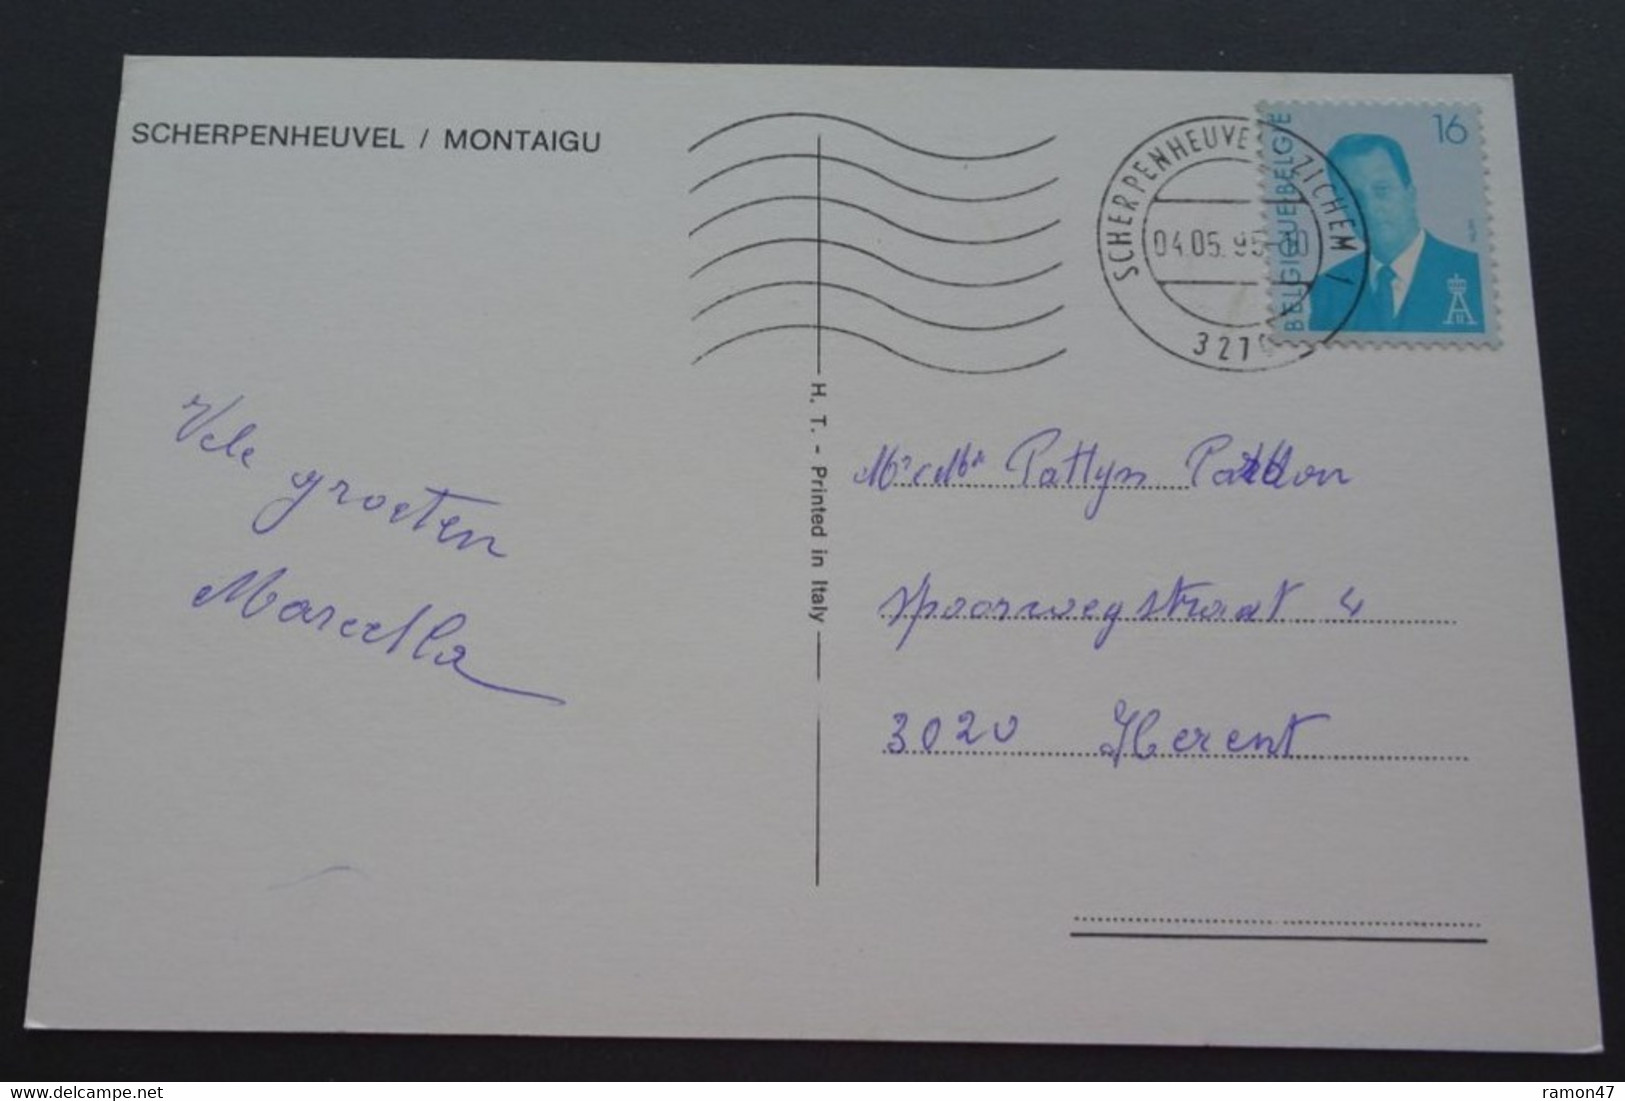 SCHERPENHEUVEL / MONTAIGU
SCHERPENHEUVEL ZICHEM 1
04.05.95-
321
BELGIQUE-BELGIË
16
H. T. - Printed in Italy
Vele groeten
Marcella
Mr & Mme Pattyn
Spoorwegstraat 4
3020 Herent
www.delcampe.net
ramon47